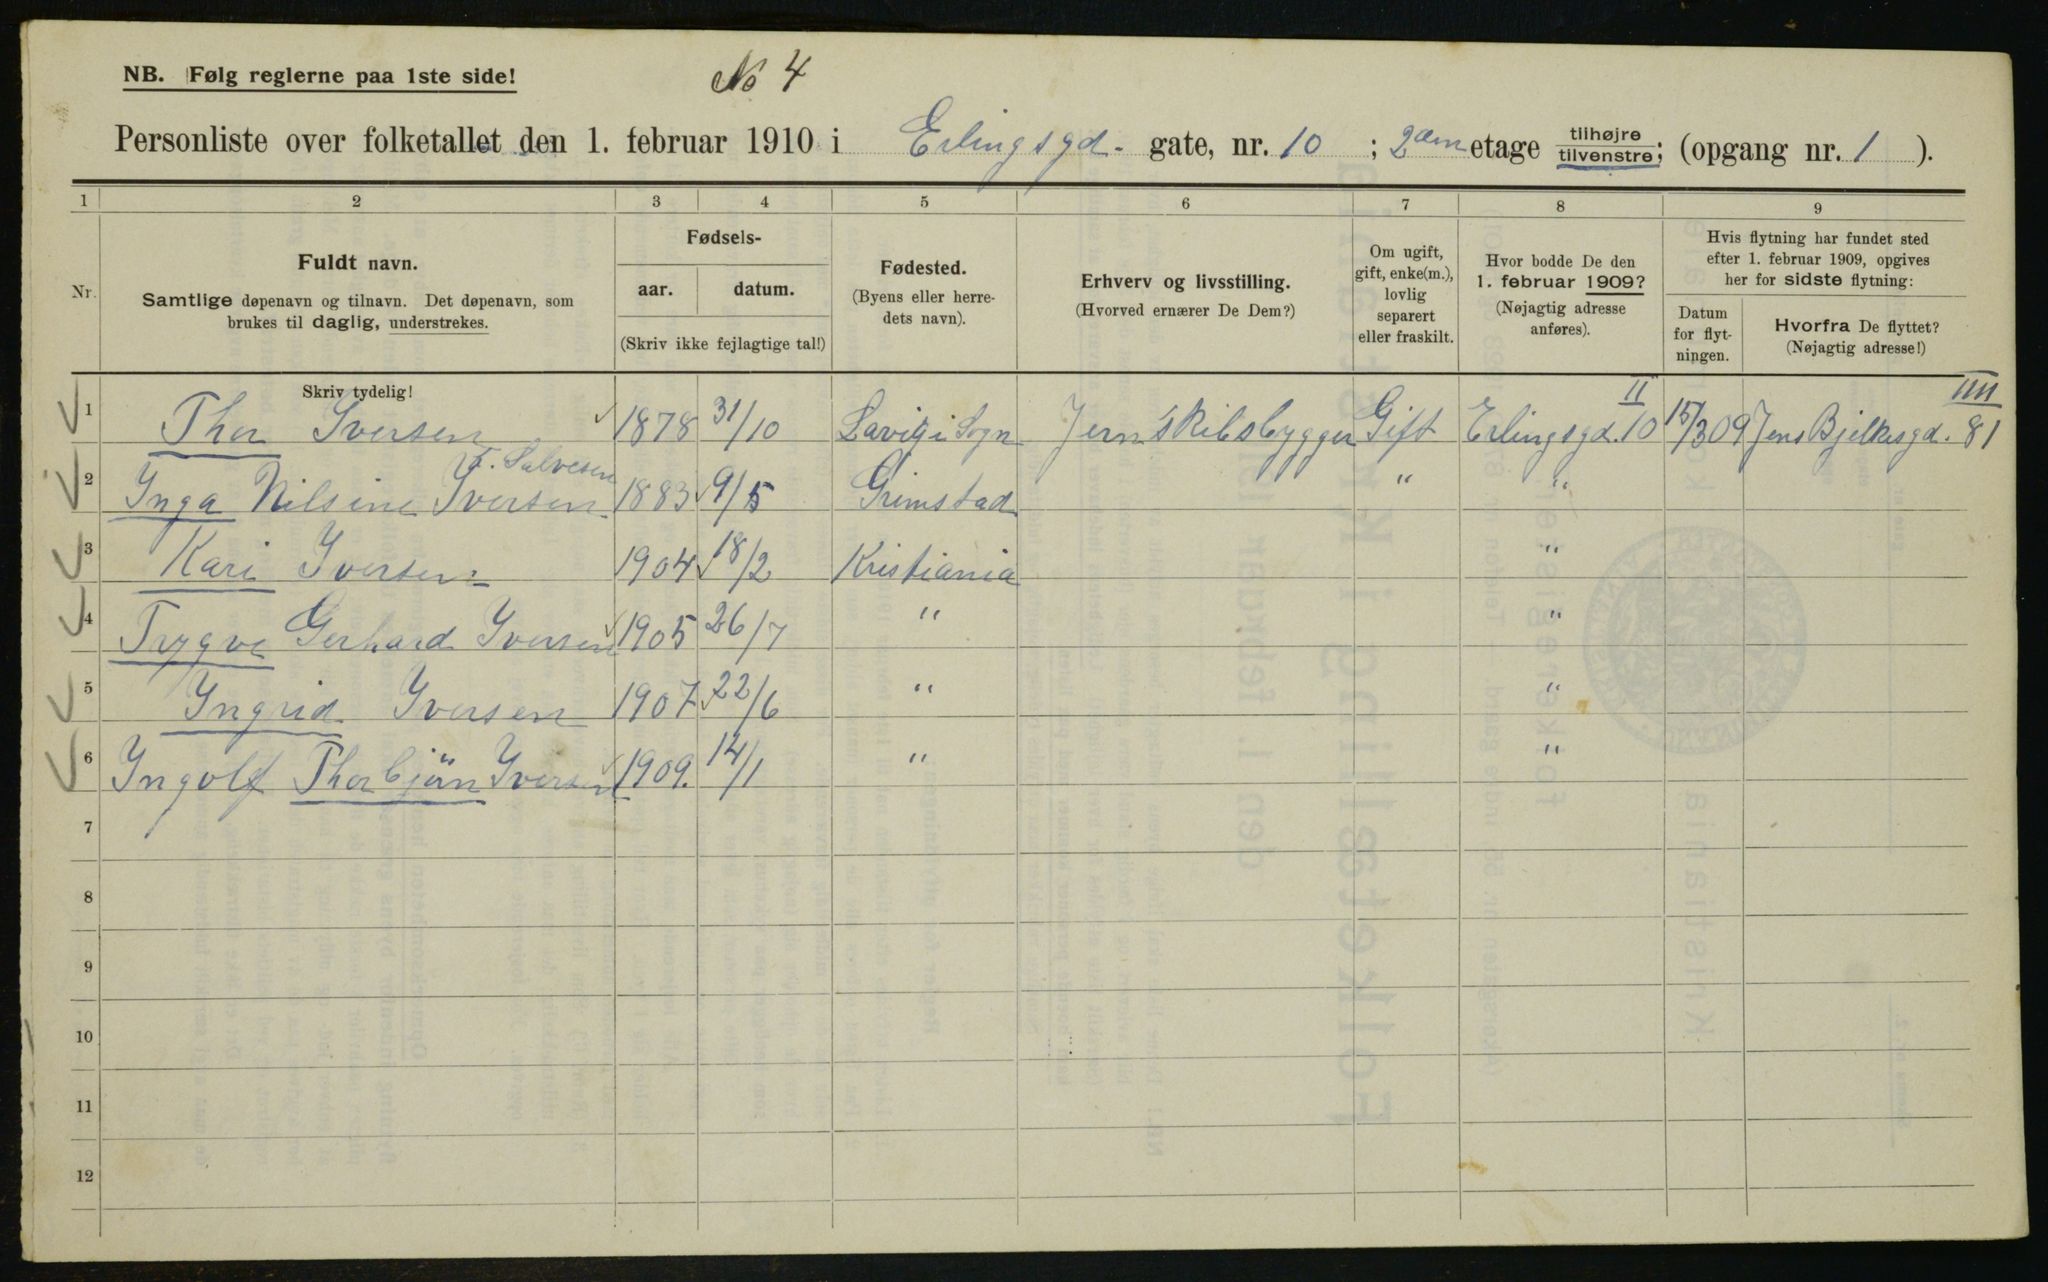 NB. Følg reglerne paa 1ste side!
No 4
Personliste over folketallet den 1. februar 1910 i Erlingsgd. gate, nr. 10 ; 2den etage tilhøjre tilvenstre; (opgang nr. 1 ).
1 2 3 4 5 6 7 8 9
Nr.
Fuldt navn.
Samtlige døpenavn og tilnavn. Det døpenavn, som
brukes til daglig, understrekes.
Skriv tydelig!
Fødsels-
aar. datum.
(Skriv ikke fejlagtige tal!)
Fødested.
(Byens eller herre-
dets navn).
Erhverv og livsstilling.
(Hvorved ernærer De Dem?)
Om ugift,
gift, enke(m.),
lovlig
separert
eller fraskilt.
Hvor bodde De den
1. februar 1909?
(Nøjagtig adresse
anføres).
Hvis flytning har fundet sted
efter 1. februar 1909, opgives
her for sidste flytning:
Datum
for flyt-
ningen.
Hvorfra De flyttet?
(Nøjagtig adresse!)
1 Thor Iversen 1878 31/10 Lavik i Sogn Jernskibsbygger Gift Erlingsgd. 10 II 15/3 09 Jens Bjelkesgd. 81 IIII
F. Salvesen
2 Inga Nilsine Iversen 1883 9/5 Grimstad " "
3 Kari Iversen 1904 18/2 Kristiania "
4 Trygve Gerhard Iversen 1905 26/7 " "
5 Ingrid Iversen 1907 22/6 " "
6 Ingolf Thorbjørn Iversen 1909. 14/1 " "
7
8
9
10
11
12